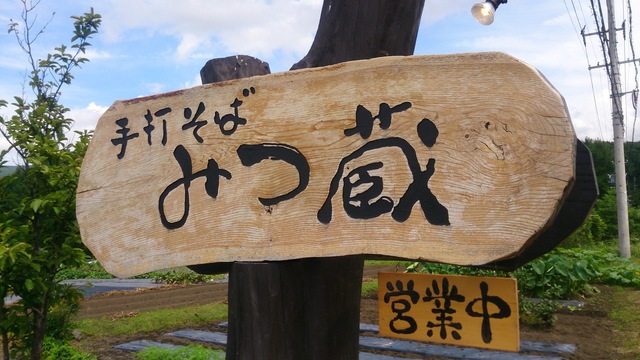 手打そば
みつ蔵
営業中